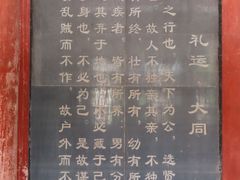 礼运 大同
之行也，天下为公，选贤
。故人不独亲其亲，不独
有所终，壮有所用，幼有所
疾者，皆有所养，男有分
其弃于地也，不必藏于己
身也，不必为己。是故谋
乱贼而不作，故户外而不